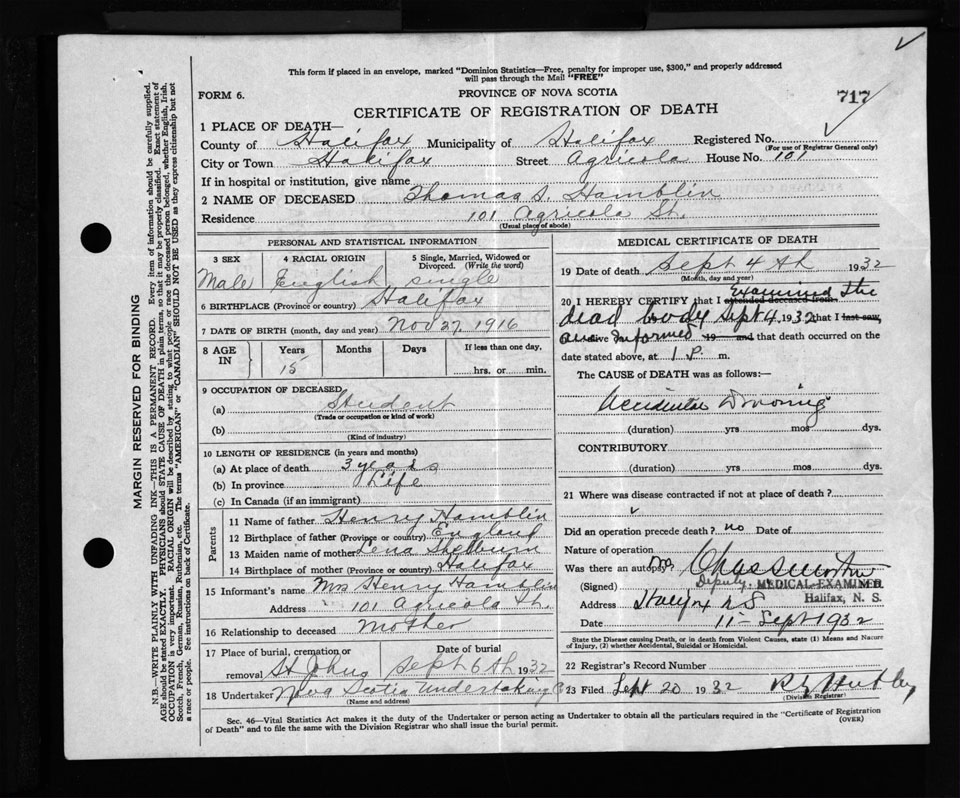 This form if placed in an envelope, marked "Dominion Statistics—Free, penalty for improper use, $300," and properly addressed
will pass through the Mail "FREE"
FORM 6.
PROVINCE OF NOVA SCOTIA
717
CERTIFICATE OF REGISTRATION OF DEATH
1 PLACE OF DEATH—
County of Halifax Municipality of Halifax Registered No.
(For use of Registrar General only)
City or Town Halifax Street Agricola House No. 101
If in hospital or institution, give name
2 NAME OF DECEASED Thomas S. Hamblin
Residence 101 Agricola St.
(Usual place of abode)
PERSONAL AND STATISTICAL INFORMATION
3 SEX 4 RACIAL ORIGIN 5 Single, Married, Widowed or Divorced. (Write the word)
Male English single
6 BIRTHPLACE (Province or country) Halifax
7 DATE OF BIRTH (month, day and year) Nov 27, 1916
8 AGE IN Years Months Days If less than one day,
15 hrs. or min.
9 OCCUPATION OF DECEASED
(a) Student
(Trade or occupation or kind of work)
(b)
(Kind of industry)
10 LENGTH OF RESIDENCE (in years and months)
(a) At place of death 3 years
(b) In province Life
(c) In Canada (if an immigrant)
Parents
11 Name of father Henry Hamblin
12 Birthplace of father (Province or country) England
13 Maiden name of mother Lena
14 Birthplace of mother (Province or country) Halifax
15 Informant's name Mrs Henry Hamblin
Address 101 Agricola St.
16 Relationship to deceased Mother
17 Place of burial, cremation or removal Date of burial
St Johns Sept 6th 1932
18 Undertaker Nova Scotia Undertaking Co
(Name and address)
MEDICAL CERTIFICATE OF DEATH
19 Date of death Sept 4th 1932
(Month, day and year)
20 I HEREBY CERTIFY that I attended deceased from Examined the
dead body Sept 4, 1932 that I last saw
alive Informed 19 and that death occurred on the
date stated above, at 1 P. m.
The CAUSE of DEATH was as follows:—
Accidental Drowning
(duration) yrs mos dys.
CONTRIBUTORY
(duration) yrs mos dys.
21 Where was disease contracted if not at place of death?
Did an operation precede death? no Date of
Nature of operation
Was there an autopsy? no
(Signed) Deputy MEDICAL EXAMINER
Address Halifax N S Halifax, N. S.
Date 11 - Sept 1932
State the Disease causing Death, or in death from Violent Causes, state (1) Means and Nature
of Injury, (2) whether Accidental, Suicidal or Homicidal.
22 Registrar's Record Number
23 Filed Sept 20 1932
(Division Registrar)
Sec. 46—Vital Statistics Act makes it the duty of the Undertaker or person acting as Undertaker to obtain all the particulars required in the "Certificate of Registration
of Death" and to file the same with the Division Registrar who shall issue the burial permit. (OVER)
MARGIN RESERVED FOR BINDING
N.B.—WRITE PLAINLY WITH UNFADING INK—THIS IS A PERMANENT RECORD. Every item of information should be carefully supplied.
AGE should be stated EXACTLY. PHYSICIANS should STATE CAUSE OF DEATH in plain terms, so that it may be properly classified. Exact statement of
OCCUPATION is very important. RACIAL ORIGIN will be described by stating to what people or race the deceased person belonged, whether English, Irish,
Scotch, French, German, Russian, Ruthenian, etc. The terms "AMERICAN" or "CANADIAN" SHOULD NOT BE USED as they express citizenship but not
a race or people. See instructions on back of Certificate.